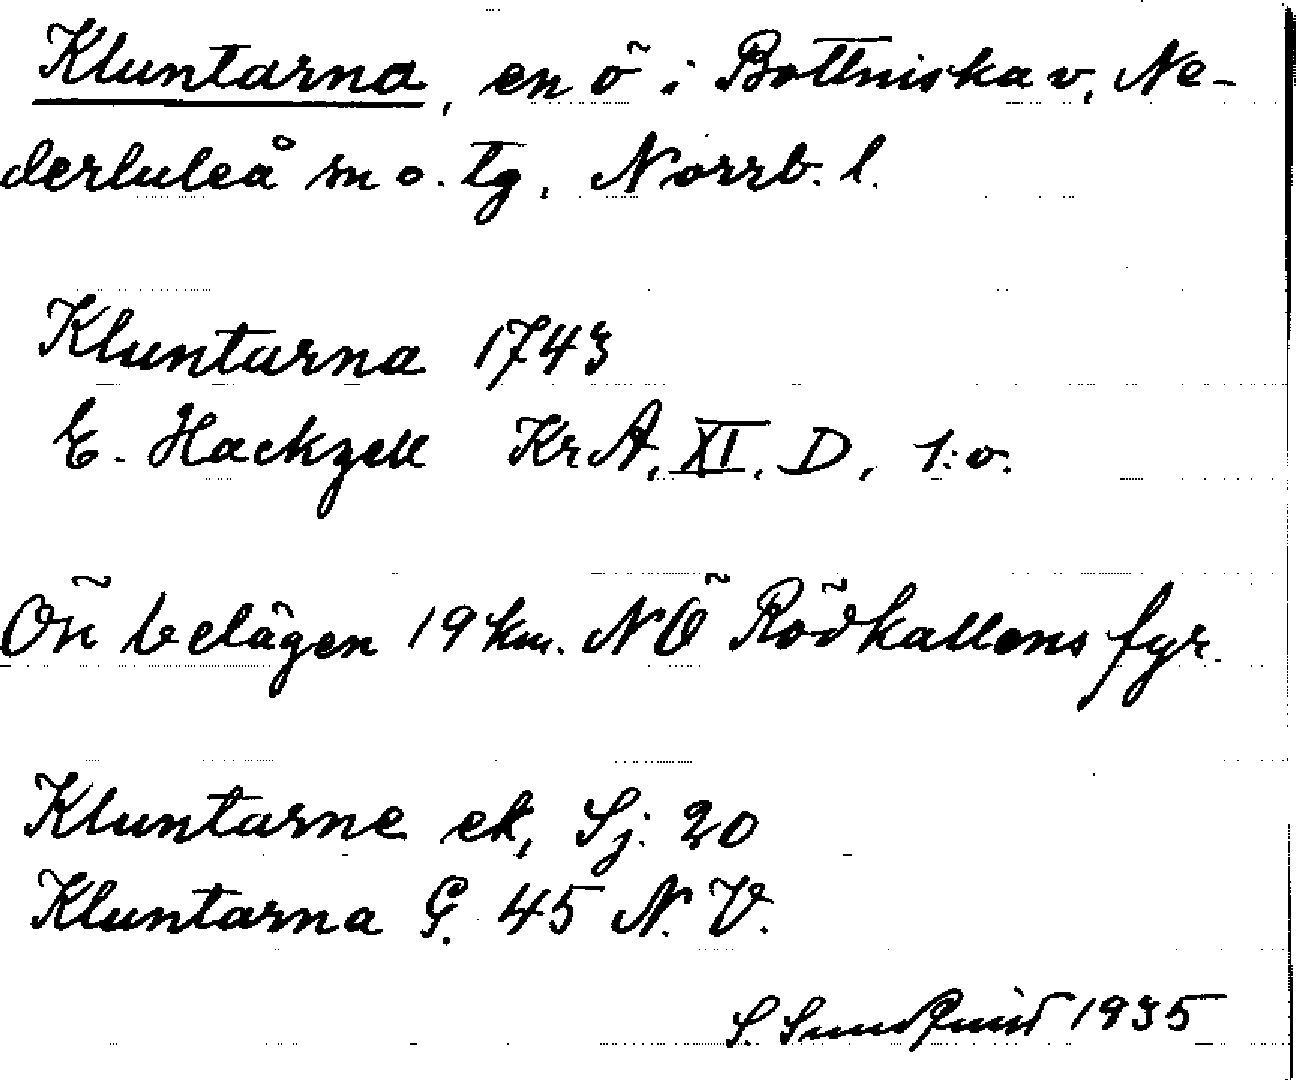 Kluntarna, en ö i Bottniska v, Ne-
derluleå sn o. tg, Norrb. l.
Kluntarna 1743
E. Hackzell Kr A, XI, D, 1:o.
Ön belägen 19 km. NÖ Rödkallens fyr.
Kluntarne ek, Sj. 20
Kluntarna G. 45 N. V.
S. Sundquist 1935